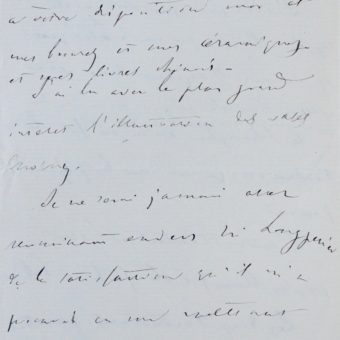 à votre disposition moi et
mes bronzes et mes céramiques
et mes livres chinois –
J'ai lu avec le plus grand
intérêt l'illustration des vases
Je ne serai jamais assez
reconnaissant envers Mr Longpérier
de la satisfaction qu'il m'a
procuré en me mettant